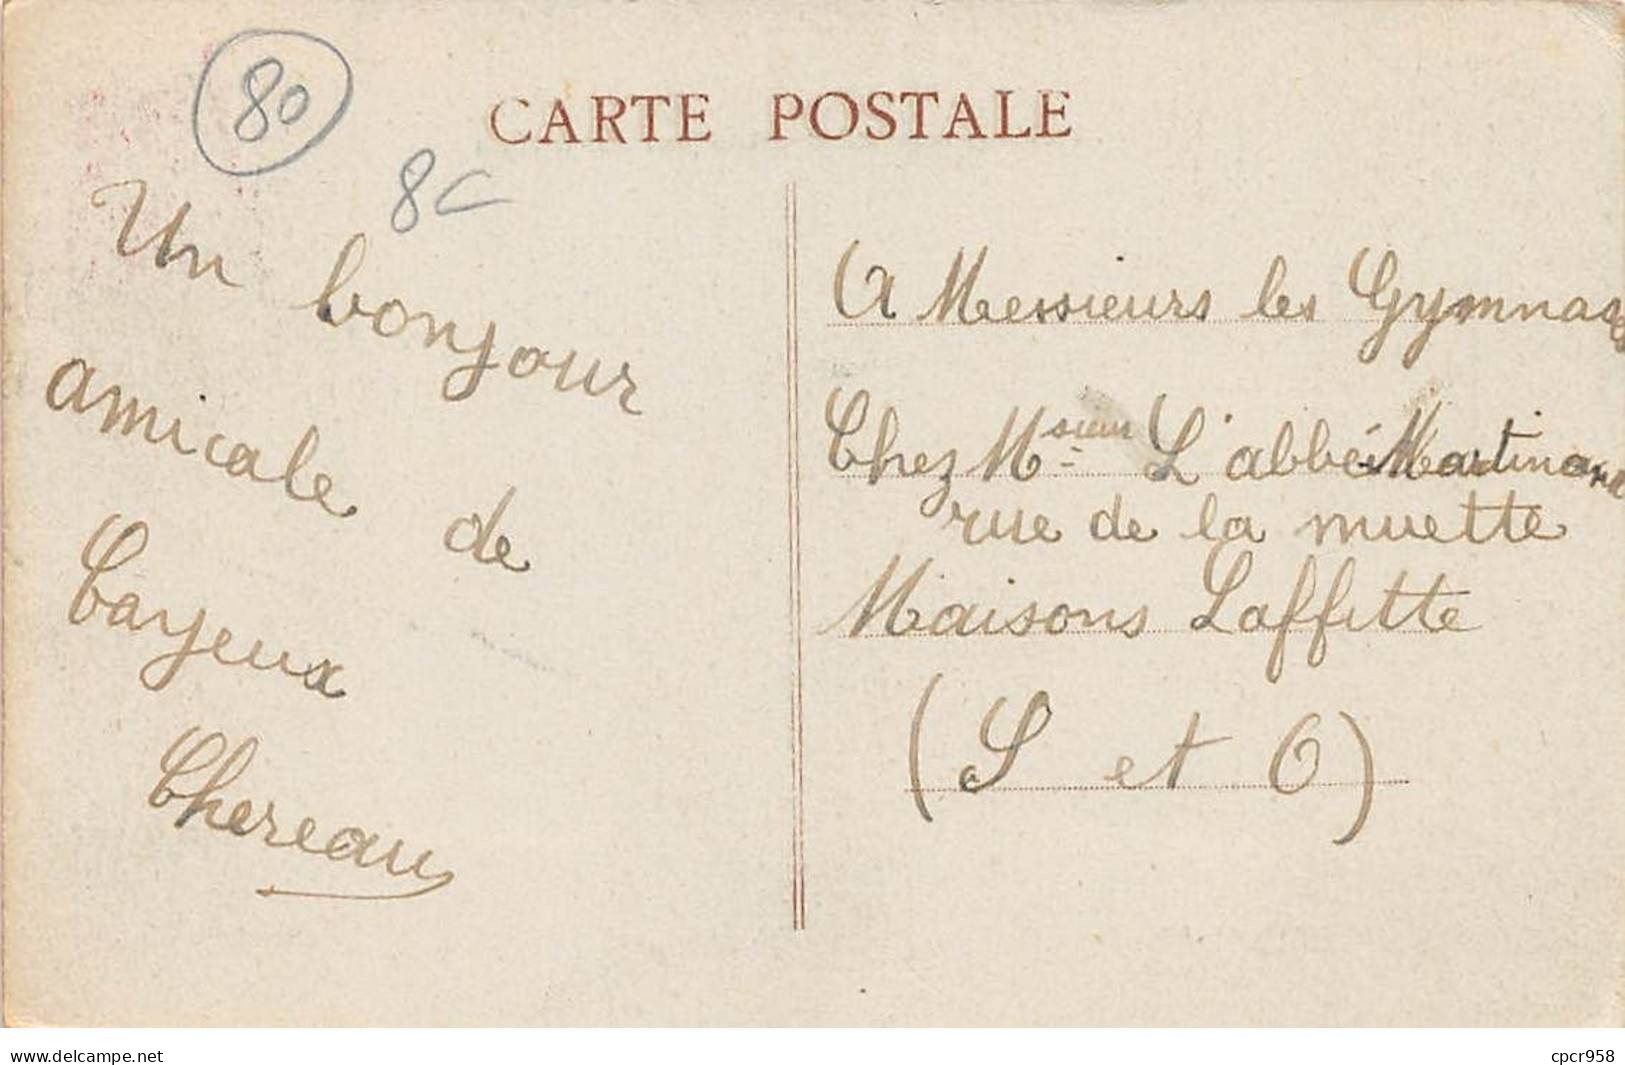 80
CARTE POSTALE
8C
Un bonjour
amicale de
Cayeux
Chereau
A Messieurs les Gymnastes
Chez Msieur L'abbé Martinard
rue de la muette
Maisons Laffitte
(S et O)
www.delcampe.net
cpcr958